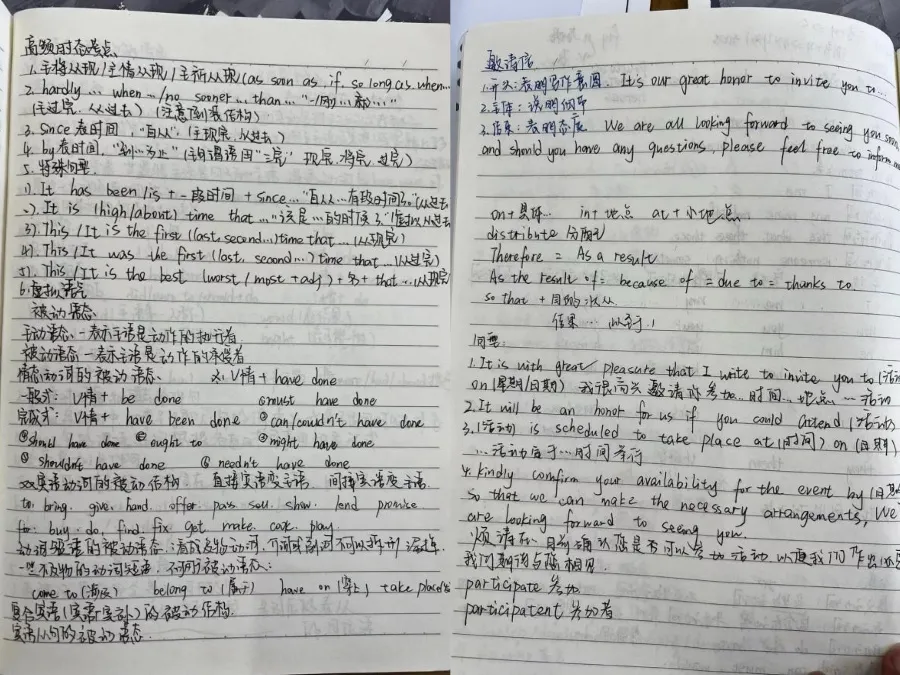 高频时态考点
1.主将从现/主情从现/主祈从现(as soon as, if, so long as, when...
2. hardly... when.../no sooner... than... "一...就..."
(主过完,从过去) (注意倒装结构)
3. Since 表时间,"自从"(主现完,从过去)
4. by表时间,"到...为止"(主句谓语用"三完" 现完,将完,过完)
5. 特殊句型
1). It has been/is + 一段时间 + since... "自从...有段时间了"(从过去
2). It is (high/about) time that... "该是...的时候了"(虚拟从过去
3). This/It is the first (last, second...) time that... (从现完)
4). This/It was the first (last, second...) time that... (从过完)
5). This/It is the best (worst/most + adj) + 名 + that ...(从现完
6.虚拟语气
被动语态
主动语态—表示主语是动作的执行者
被动语态—表示主语是动作的承受者
情态动词的被动语态 V情 + have done
一般式: V情 + be done ①must have done
完成式: V情 + have been done ②can/couldn't have done
③should have done ④ought to ⑤might have done
shouldn't have done ⑥needn't have done
双宾语动词的被动结构 直接宾语变主语 间接宾语变主语
to: bring. give. hand. offer. pass. sell. show. lend promise
for: buy. do. find. fix get. make. cook. play.
动词短语的被动语态:
一些不及物的动词短语,不可用被动语态:
come to belong to (属于) have on (穿上) take place
复合宾语(宾语+宾补)的被动结构
宾语从句的被动语态
邀请信
1.开头:表明写作意图. It's our great honor to invite you to...
2.主体:说明细节
3.结束:表明态度 We are all looking forward to seeing you soon
and should you have any questions, please feel free to inform
on+具体... in+地点 at+小地点
distribute 分配
Therefore = As a result
As the result of = because of = due to = thanks to
so that + 目的状从
结果... 以至于
句型:
1.It is with great pleasure that I write to invite you to (活动)
on (星期/日期) 我很高兴邀请你参加...时间...地点...活动
2.It will be an honor for us if you could attend (活动)
3.(活动) is scheduled to take place at (时间) on (日期)
...活动定于...时间举行
4.kindly comfirm your availability for the event by (日期
so that we can make the necessary arrangements, We
are looking forward to seeing you.
烦请在 日前确认您是否可以参加活动以便我们作出
我们期待与您相见
participate 参加
participatent 参加者